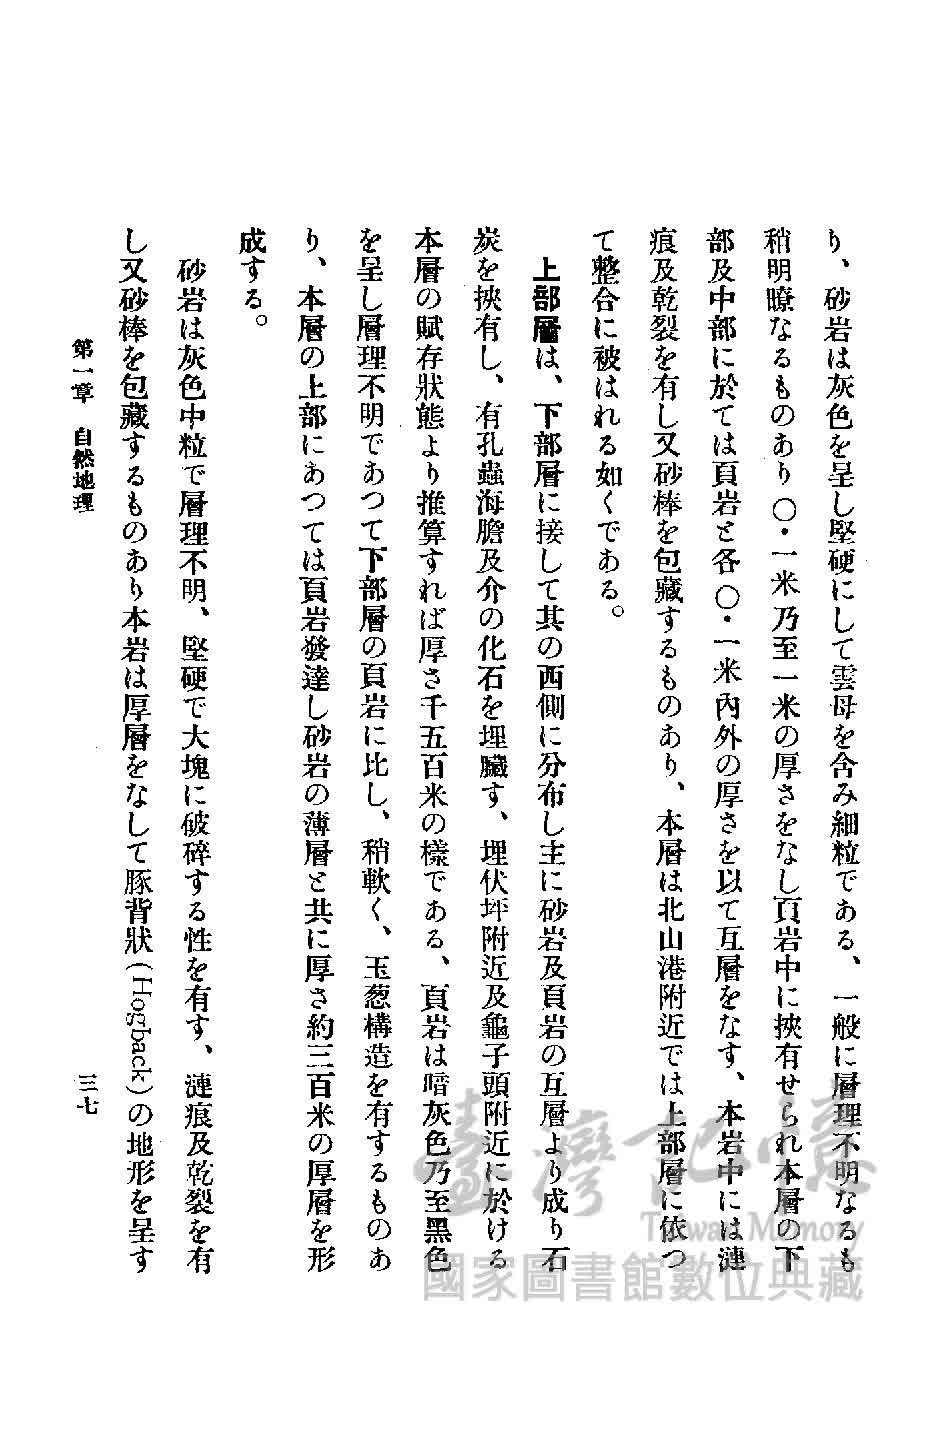 り、砂岩は灰色を呈し堅硬にして雲母を含み細粒である、一般に層理不明なるも
稍明瞭なるものあり〇・一米乃至一米の厚さをなし頁岩中に挾有せられ本層の下
部及中部に於ては頁岩と各〇・一米內外の厚さを以て互層をなす、本岩中には漣
痕及乾裂を有し又砂棒を包藏するものあり、本層は北山港附近では上部層に依つ
て整合に被はれる如くである。
上部層は、下部層に接して其の西側に分布し主に砂岩及頁岩の互層より成り石
炭を挾有し、有孔蟲海膽及介の化石を埋臟す、埋伏坪附近及龜子頭附近に於ける
本層の賦存狀態より推算すれば厚さ千五百米の樣である、頁岩は暗灰色乃至黑色
を呈し層理不明であつて下部層の頁岩に比し、稍軟く、玉葱構造を有するものあ
り、本層の上部にあつては頁岩發達し砂岩の薄層と共に厚さ約三百米の厚層を形
成する。
砂岩は灰色中粒で層理不明、堅硬で大塊に破碎する性を有す、漣痕及乾裂を有
し又砂棒を包藏するものあり本岩は厚層をなして豚背狀(Hogback)の地形を呈す
第一章 自然地理
三七
臺灣記憶
Taiwan Memory
國家圖書館數位典藏